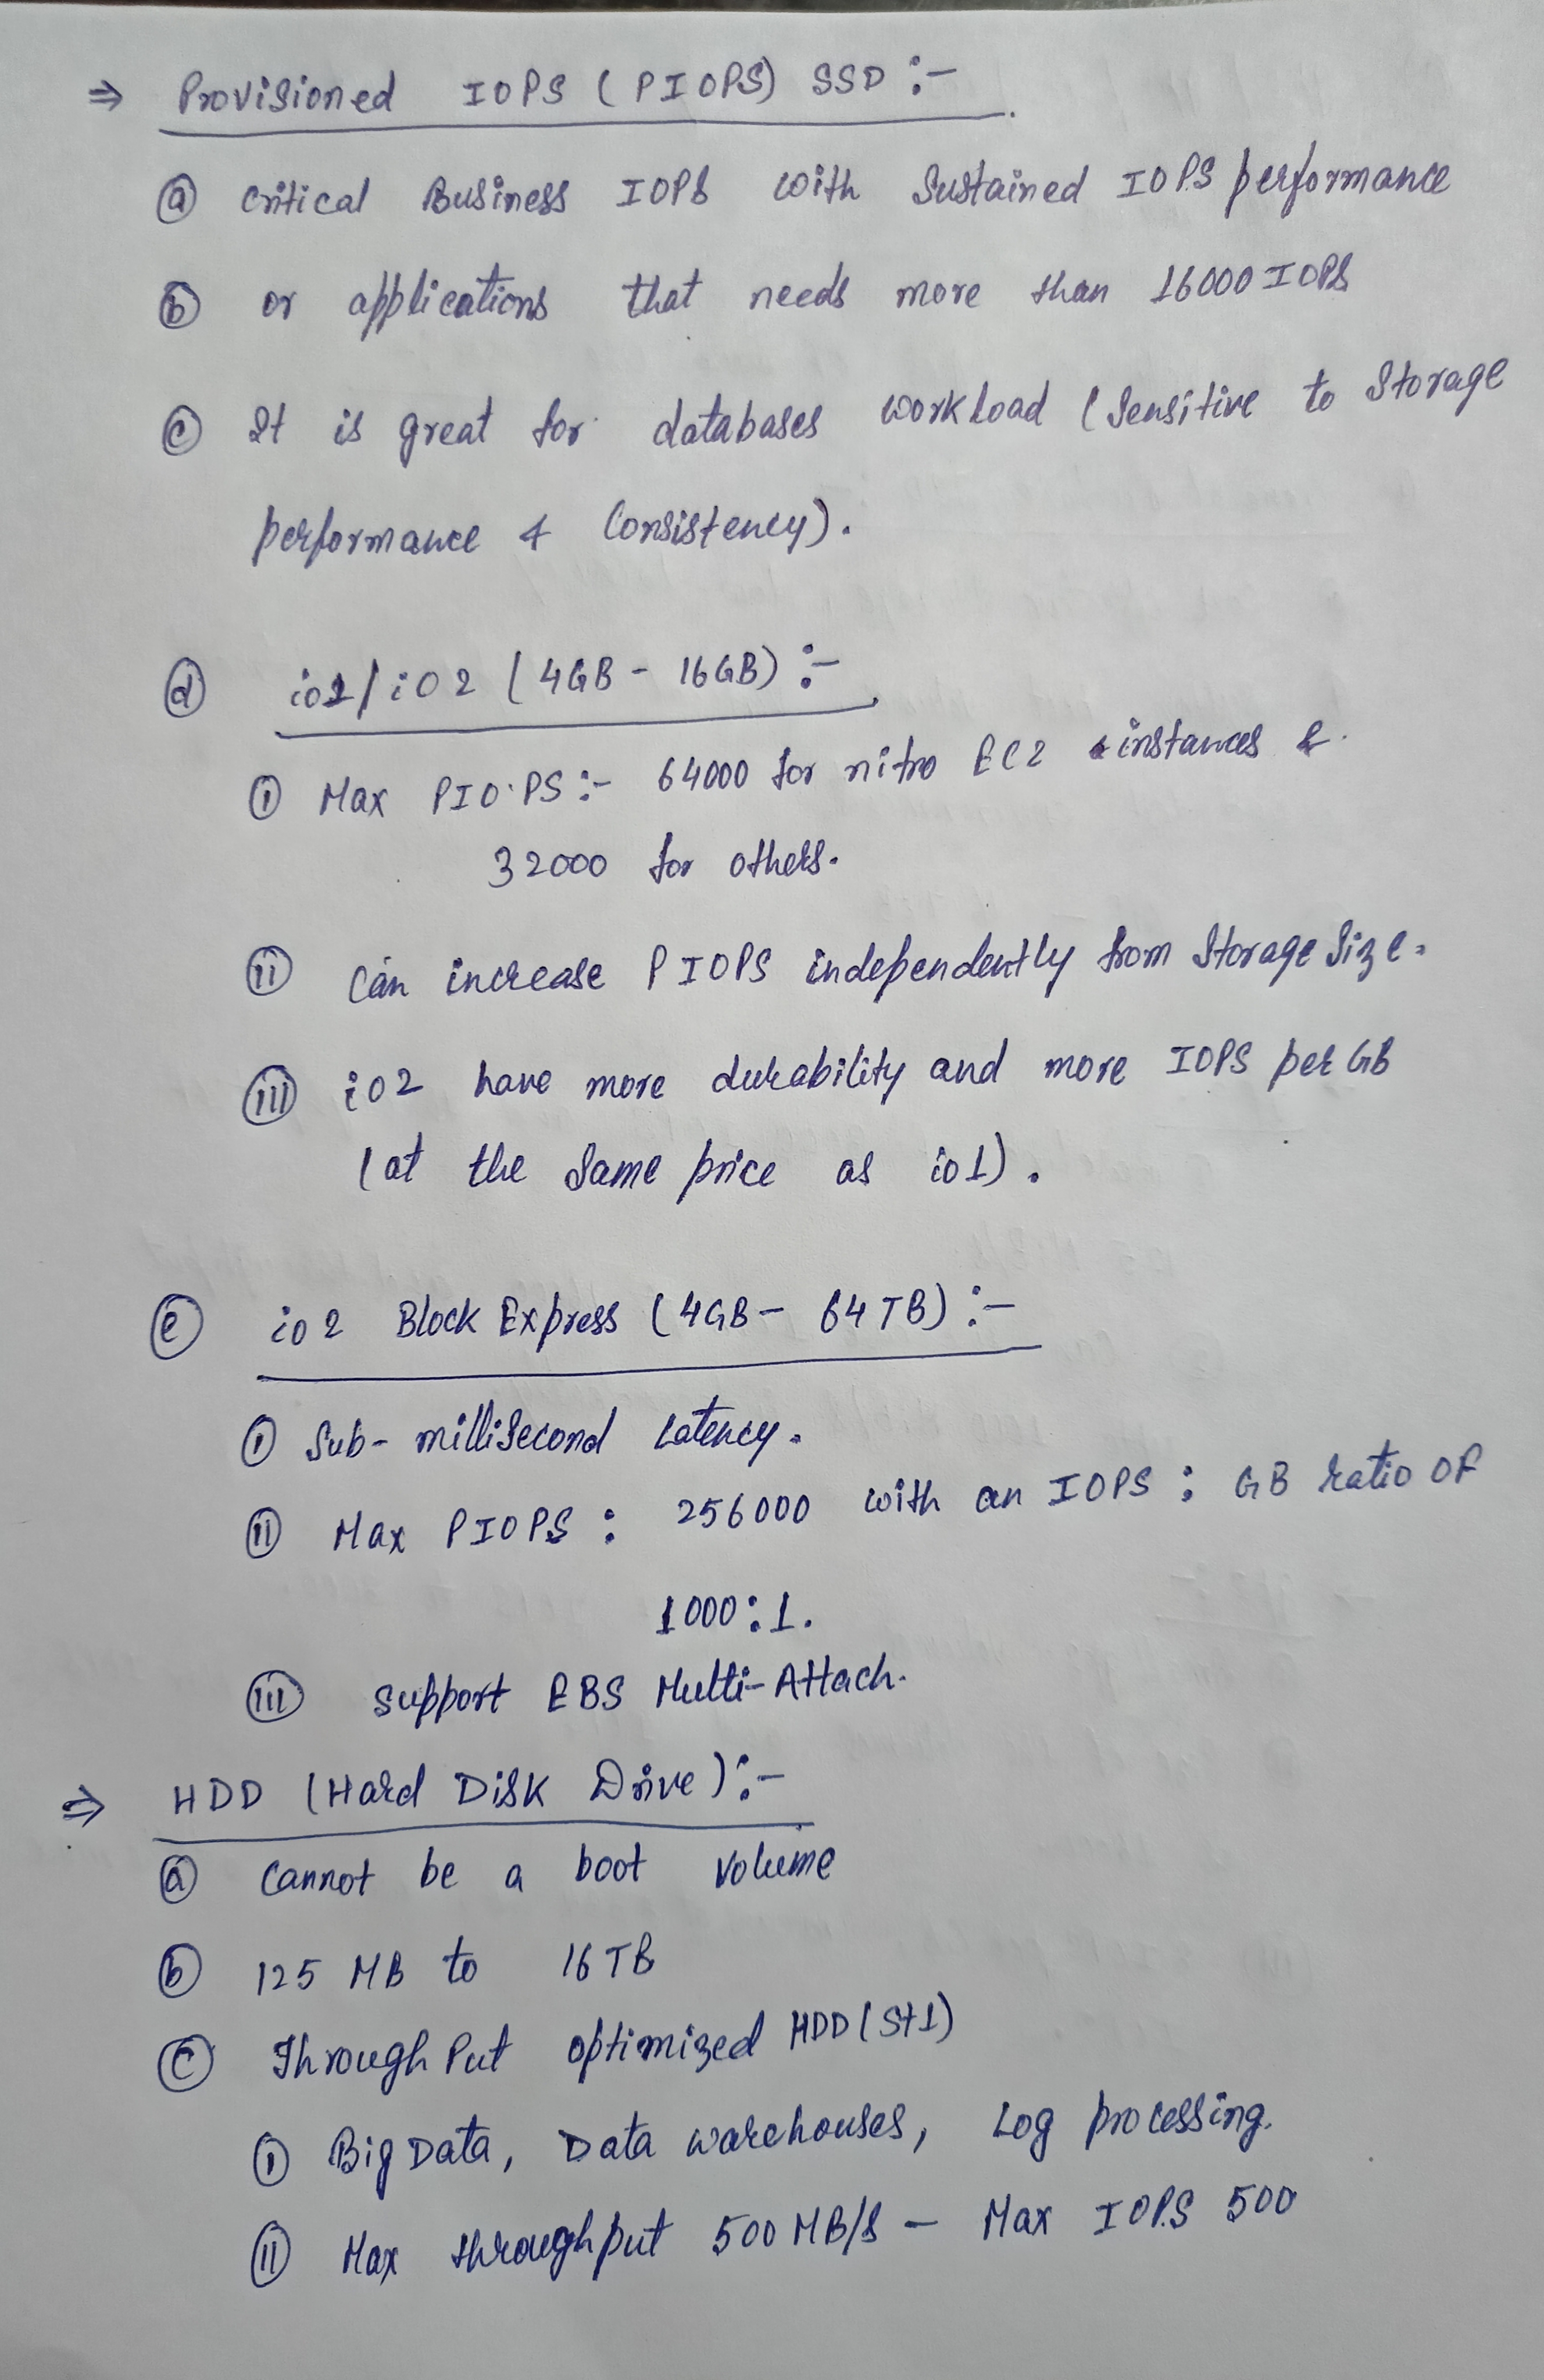 ⇒ Provisioned IOPS (PIOPS) SSD :-
ⓐ Critical Business IOPS with Sustained IOPS performance
ⓑ or applications that needs more than 16000 IOPS
ⓒ It is great for databases workload (Sensitive to Storage
performance & Consistency).
ⓓ io1/io2 (4GB - 16GB) :-
ⓘ Max PIOPS :- 64000 for nitro EC2 instances &
32000 for others.
ⓘⓘ Can increase PIOPS independently from Storage Size.
ⓘⓘⓘ io2 have more durability and more IOPS per GB
(at the Same price as io1).
ⓔ io2 Block Express (4GB - 64TB) :-
ⓘ Sub-millisecond Latency.
ⓘⓘ Max PIOPS : 256000 with an IOPS : GB ratio of
1000:1.
ⓘⓘⓘ Support EBS Multi-Attach.
⇒ HDD (Hard Disk Drive) :-
ⓐ Cannot be a boot Volume
ⓑ 125 MB to 16TB
ⓒ Through Put optimized HDD (St1)
ⓘ Big Data, Data warehouses, Log processing.
ⓘⓘ Max throughput 500 MB/s - Max IOPS 500